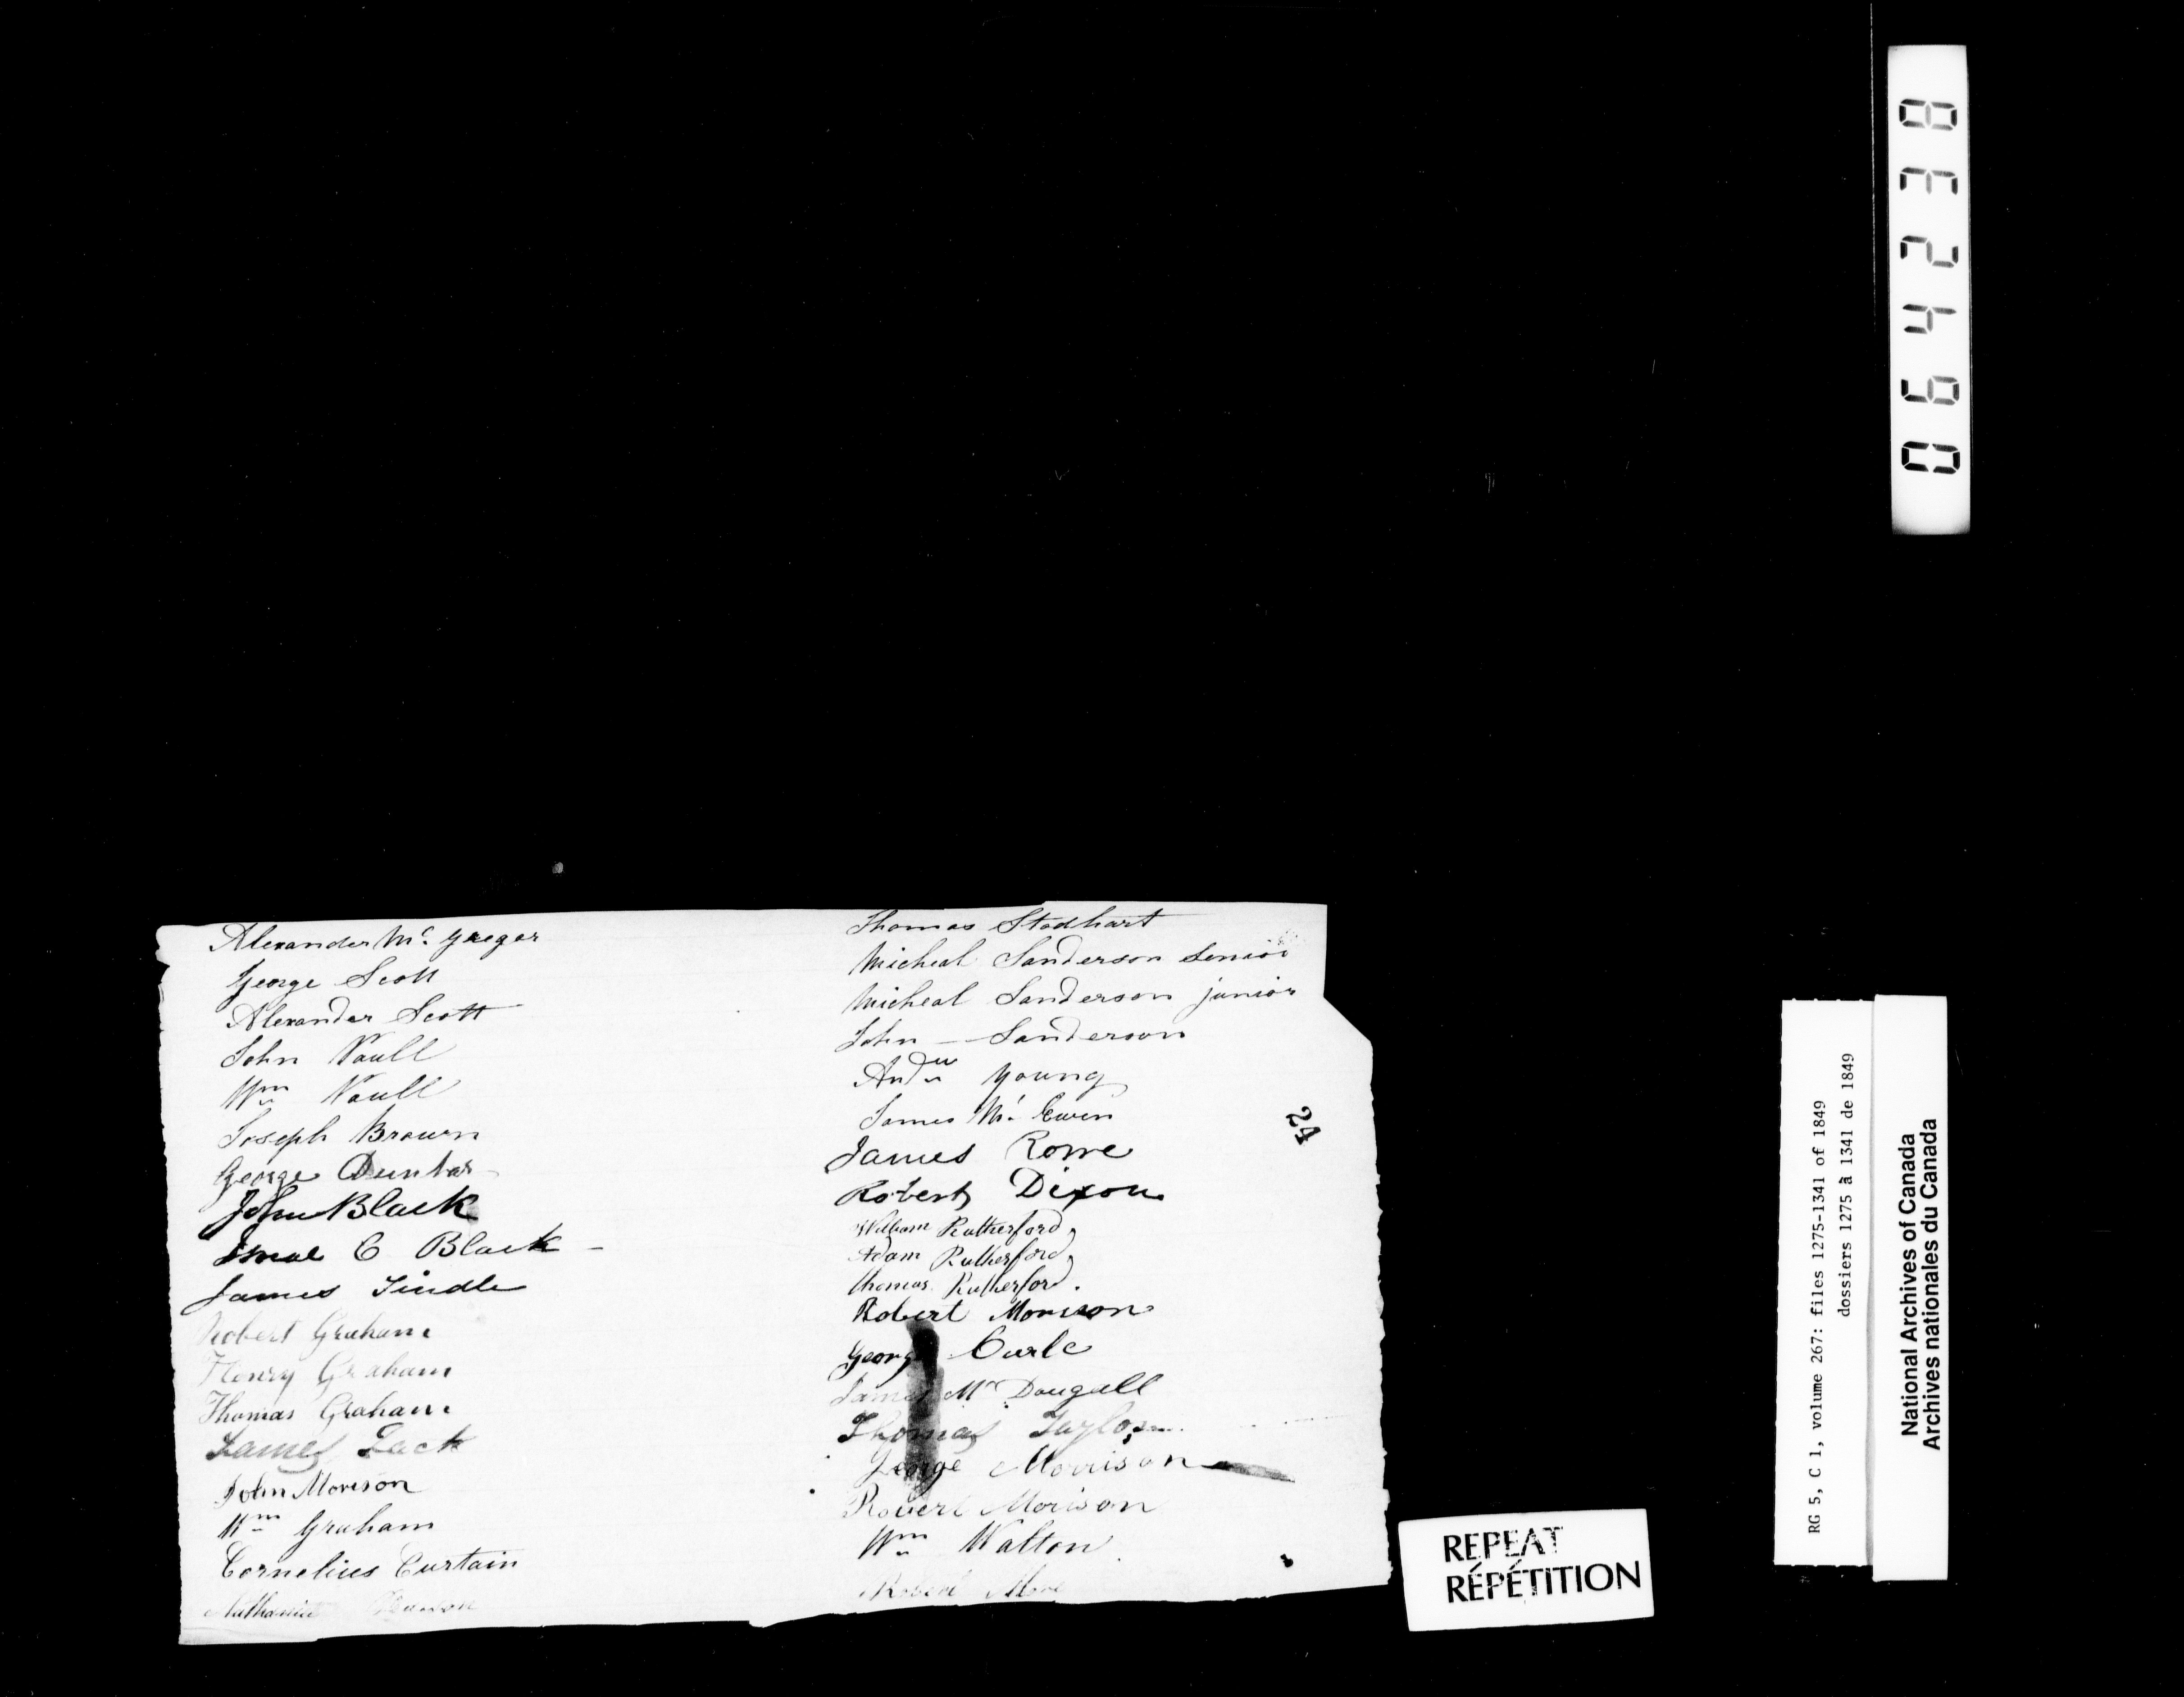 Alexander Mc Gregor
George Scott
Alexander Scott
John Vaull
Wm Vaull
Joseph Brown
George Dunbar
John Black
C Black
James Tindle
Robert Graham
Henry Graham
Thomas Graham
James Zack
John Morison
Wm Graham
Cornelius Curtain
Thomas Stodhart
Micheal Sanderson Senior
Micheal Sanderson junior
John - Sanderson
Andw Young
James Mc Ewin
James Rowe
Robert Dixon
William Rutherford,
Adam Rutherford,
Thomas Rutherford.
Robert Morison
George Curle
James Mc Dougall
Thomas Taylor
George Morrison
Robert Morison
Wm Walton
Robert
24
REPEAT
RÉPÉTITION
064238
RG 5, C 1, volume 267: files 1275-1341 of 1849
dossiers 1275 à 1341 de 1849
National Archives of Canada
Archives nationales du Canada